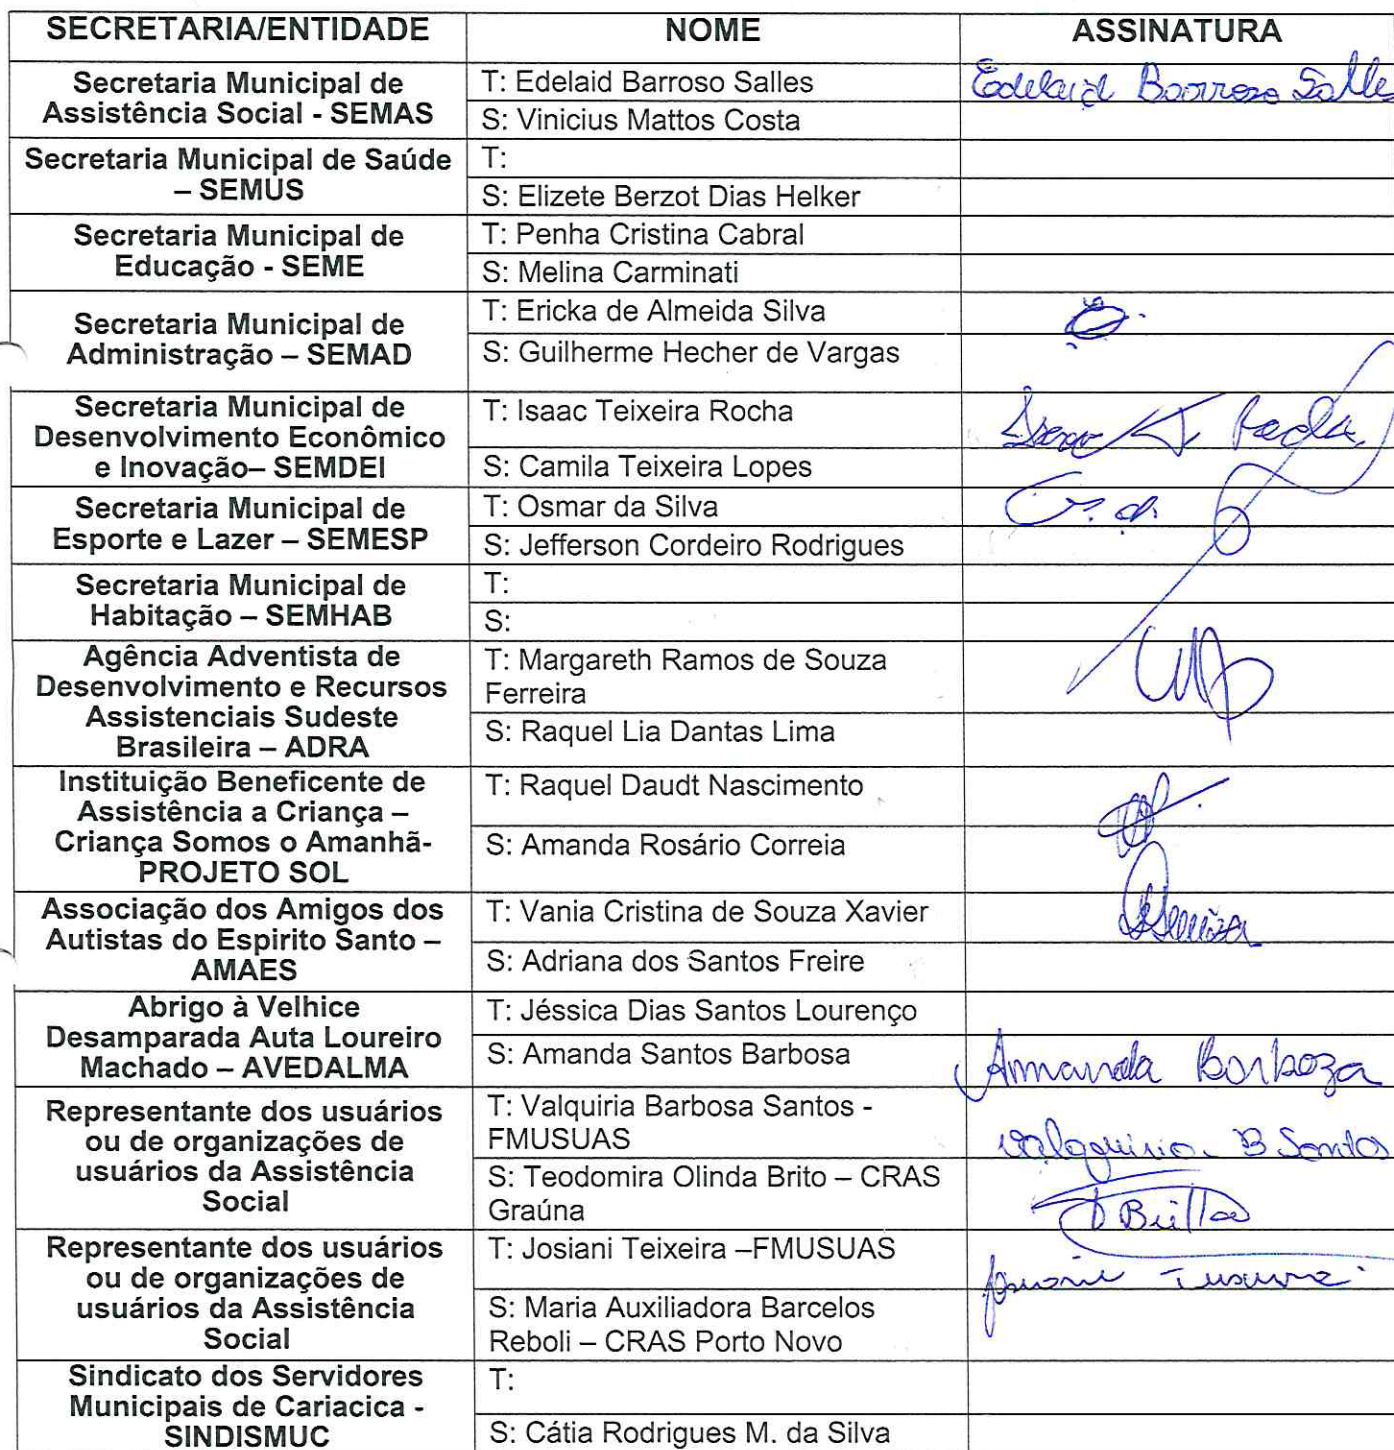 SECRETARIA/ENTIDADE NOME ASSINATURA
Secretaria Municipal de
Assistência Social - SEMAS
T: Edelaid Barroso Salles Edelaid Barroso Salles
S: Vinicius Mattos Costa
Secretaria Municipal de Saúde
– SEMUS
T:
S: Elizete Berzot Dias Helker
Secretaria Municipal de
Educação - SEME
T: Penha Cristina Cabral
S: Melina Carminati
Secretaria Municipal de
Administração – SEMAD
T: Ericka de Almeida Silva
S: Guilherme Hecher de Vargas
Secretaria Municipal de
Desenvolvimento Econômico
e Inovação– SEMDEI
T: Isaac Teixeira Rocha
S: Camila Teixeira Lopes
Secretaria Municipal de
Esporte e Lazer – SEMESP
T: Osmar da Silva
S: Jefferson Cordeiro Rodrigues
Secretaria Municipal de
Habitação – SEMHAB
T:
S:
Agência Adventista de
Desenvolvimento e Recursos
Assistenciais Sudeste
Brasileira – ADRA
T: Margareth Ramos de Souza
Ferreira
S: Raquel Lia Dantas Lima
Instituição Beneficente de
Assistência a Criança –
Criança Somos o Amanhã-
PROJETO SOL
T: Raquel Daudt Nascimento
S: Amanda Rosário Correia
Associação dos Amigos dos
Autistas do Espirito Santo –
AMAES
T: Vania Cristina de Souza Xavier
S: Adriana dos Santos Freire
Abrigo à Velhice
Desamparada Auta Loureiro
Machado – AVEDALMA
T: Jéssica Dias Santos Lourenço
S: Amanda Santos Barbosa Amanda Barboza
Representante dos usuários
ou de organizações de
usuários da Assistência
Social
T: Valquiria Barbosa Santos -
FMUSUAS
Valquiria B Santos
S: Teodomira Olinda Brito – CRAS
Graúna
Representante dos usuários
ou de organizações de
usuários da Assistência
Social
T: Josiani Teixeira –FMUSUAS
S: Maria Auxiliadora Barcelos
Reboli – CRAS Porto Novo
Sindicato dos Servidores
Municipais de Cariacica -
SINDISMUC
T:
S: Cátia Rodrigues M. da Silva